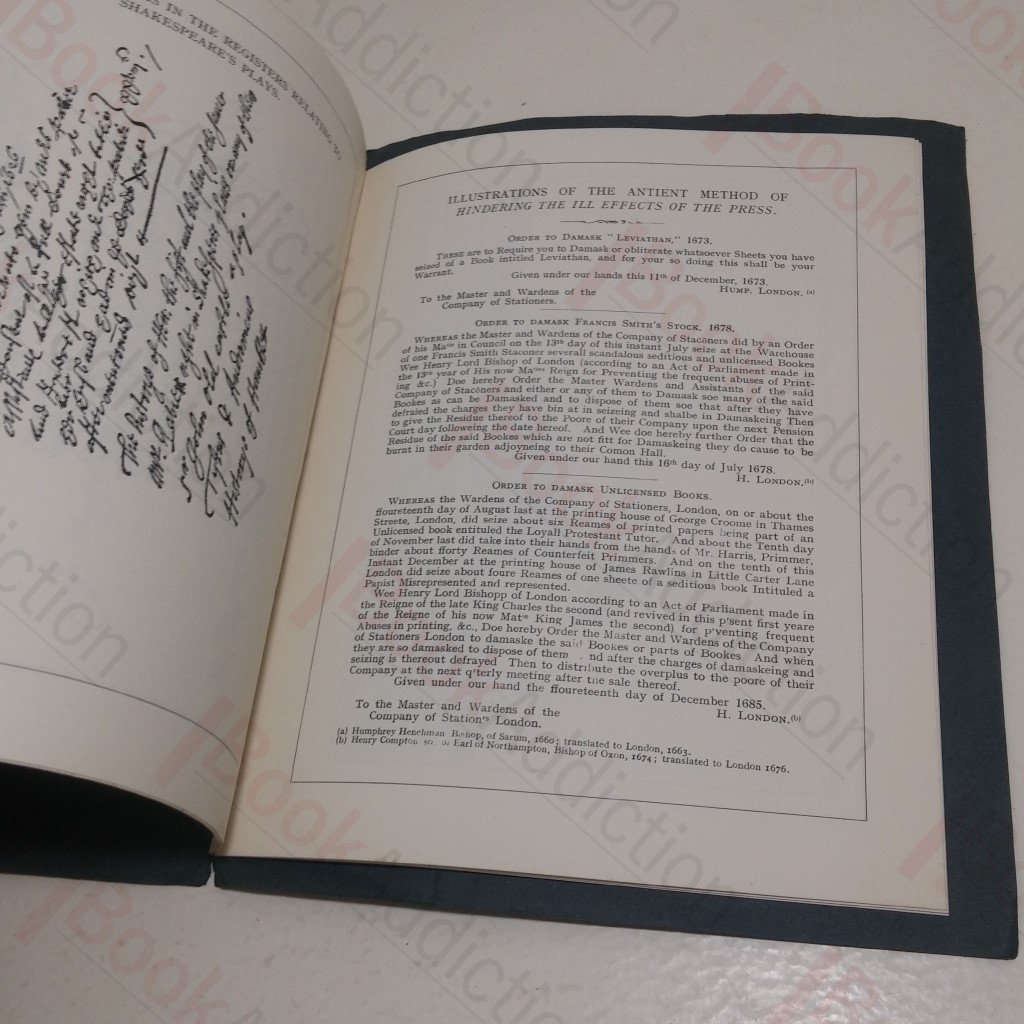 S IN THE REGISTERS RELATING TO
SHAKESPEARE'S PLAYS.
ILLUSTRATIONS OF THE ANTIENT METHOD OF
HINDERING THE ILL EFFECTS OF THE PRESS.
ORDER TO DAMASK "LEVIATHAN," 1673.
THESE are to Require you to Damask or obliterate whatsoever Sheets you have
seized of a Book intitled Leviathan, and for your so doing this shall be your
Warrant.
Given under our hands this 11th of December, 1673.
HUMP. LONDON. (a)
To the Master and Wardens of the
Company of Stationers.
ORDER TO DAMASK FRANCIS SMITH'S STOCK, 1678.
WHEREAS the Master and Wardens of the Company of Staconers did by an Order
of his Matie in Council on the 13th day of this instant July seize at the Warehouse
of one Francis Smith Staconer severall scandalous seditious and unlicensed Bookes
Wee Henry Lord Bishop of London (according to an Act of Parliament made in
the 13th year of His now Maties Reign for Preventing the frequent abuses of Print-
ing &c.) Doe hereby Order the Master Wardens and Assistants of the said
Company of Staconers and either or any of them to Damask soe many of the said
Bookes as can be Damasked and to dispose of them soe that after they have
defraied the charges they have bin at in seizeing and shalbe in Damaskeing Then
to give the Residue thereof to the Poore of their Company upon the next Pension
Court day following the date hereof. And Wee doe hereby further Order that the
Residue of the said Bookes which are not fitt for Damaskeing they do cause to be
burnt in their garden adjoyneing to their Comon Hall.
Given under our hand this 16th day of July 1678.
H. LONDON.(b)
ORDER TO DAMASK UNLICENSED BOOKS.
WHEREAS the Wardens of the Company of Stationers, London, on or about the
ffoureteenth day of August last at the printing house of George Croome in Thames
Streete, London, did seize about six Reames of printed papers being part of an
Unlicensed book entituled the Loyall Protestant Tutor. And about the Tenth day
of November last did take into their hands from the hands of Mr. Harris, Primmer,
binder about fforty Reames of Counterfeit Primmers. And on the tenth of this
Instant December at the printing house of James Rawlins in Little Carter Lane
London did seize about foure Reames of one sheete of a seditious book Intituled a
Papist Misrepresented and represented.
Wee Henry Lord Bishopp of London according to an Act of Parliament made in
the Reigne of the late King Charles the second (and revived in this p'sent first yeare
of the Reigne of his now Matie King James the second) for p'venting frequent
Abuses in printing, &c., Doe hereby Order the Master and Wardens of the Company
of Stationers London to damaske the said Bookes or parts of Bookes And when
they are so damasked to dispose of them nd after the charges of damaskeing and
seizing is thereout defrayed Then to distribute the overplus to the poore of their
Company at the next q'terly meeting after the sale thereof.
Given under our hand the ffoureteenth day of December 1685.
H. LONDON.(b)
To the Master and Wardens of the
Company of Stationrs London.
(a) Humphrey Henchman Bishop, of Sarum, 1660; translated to London, 1663.
(b) Henry Compton so. of Earl of Northampton, Bishop of Oxon, 1674; translated to London 1676.
Book Addiction